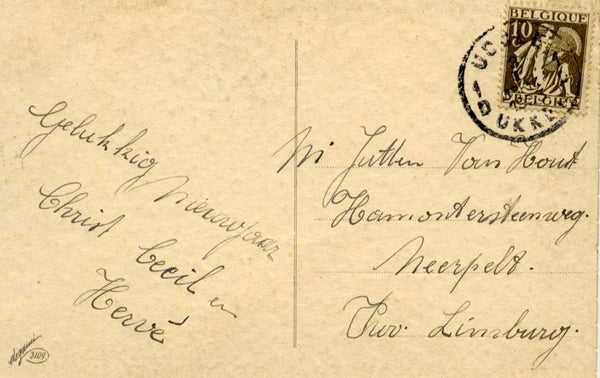 Gelukkig
Nieuwjaar
Christ Cecil en
Hervé
BELGIQUE
10
BELGIË
UKKEL
Van Hout
Hamontersteenweg.
Neerpelt.
Prov. Limburg.
3109